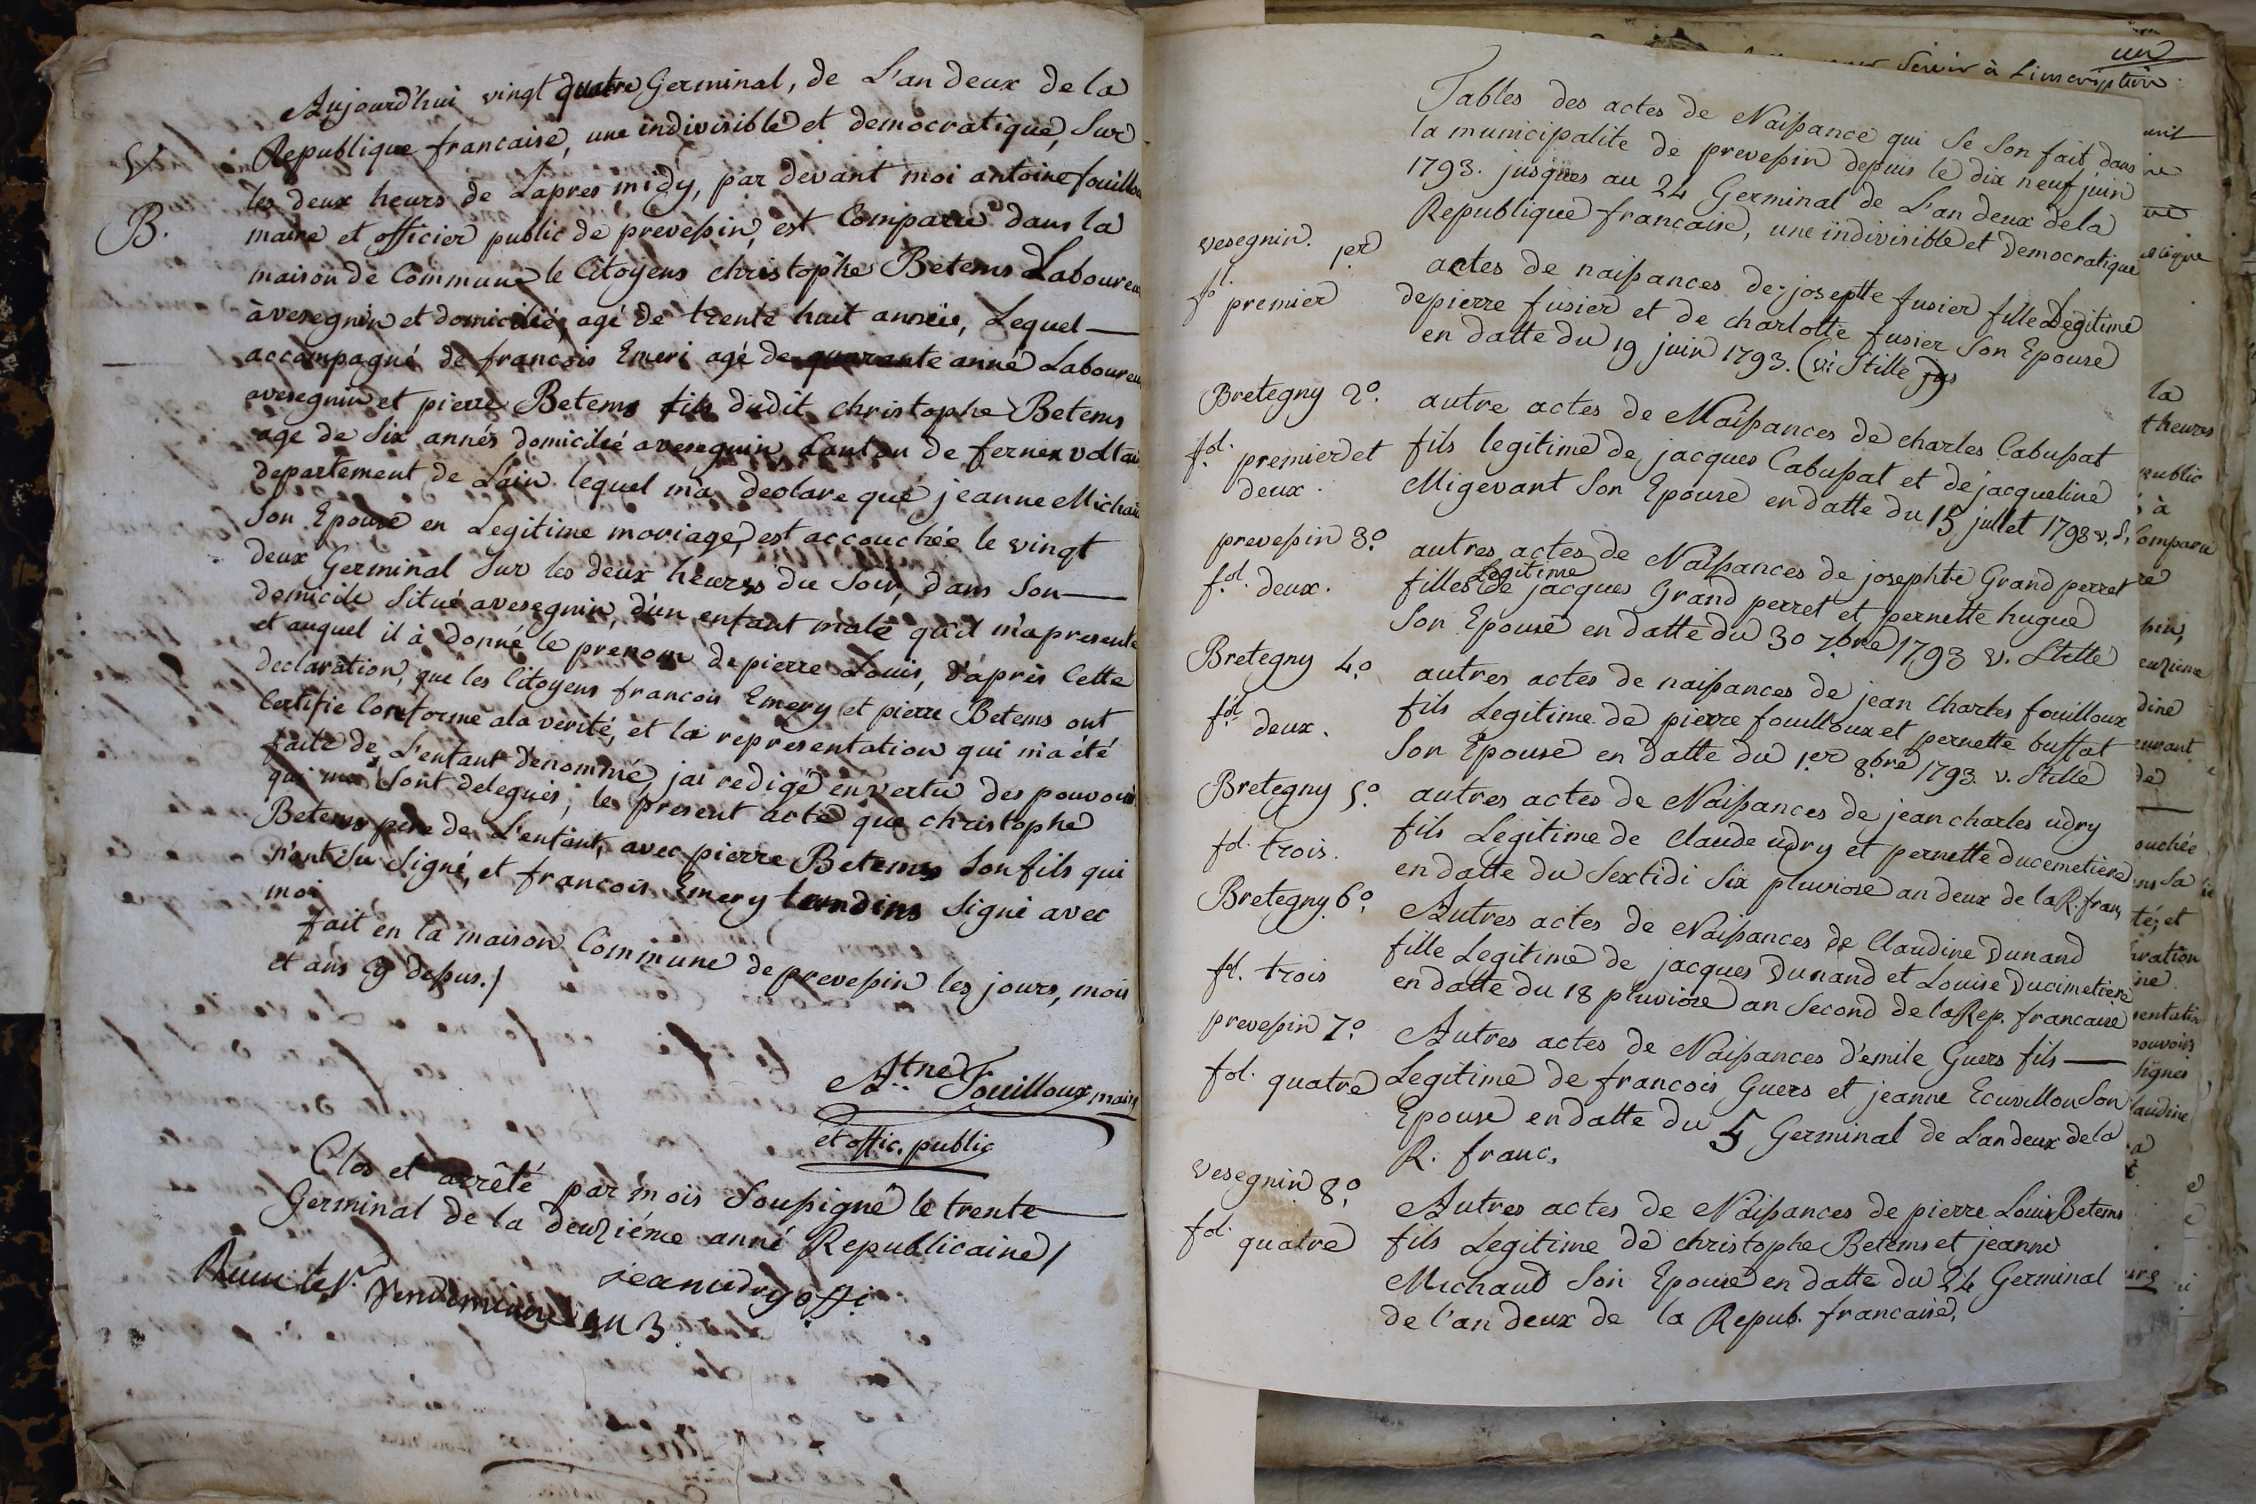 Aujourd'hui vingt quatre Germinal, de L'an deux de la
Republique francaise, une indivisible et democratique, Sur
V
les deux heurs de Lapres midy, par devant moi antoine fouillou
B.
maire et officier public de prevessin, est Comparu dans la
maison de Commune le Citoyens christophe Betems Laboureu
à vesegnin et domicilié, agé de trente huit année, Lequel
accompagné de francois Emeri agé de quarante anné Laboureu
avesegnin et pierre Betems fils dudit christophe Betems
age de Six annés domicilié avesegnin Canton de fernex voltai
departement de Lain lequel m'a declare que jeanne Michau
Son Epouse en Legitime mariage, est accouchée le vingt
deux Germinal Sur les deux heures du Soir, dans Son
domicile Situé avesegnin, d'un enfant male qu'il m'a presenté
et auquel il à donné le prenom de pierre Louis, d'après Cette
declaration, que les Citoyens francois Emery et pierre Betems ont
Certifie Conforme ala verité, et la representation qui m'a été
faite de L'enfant denommé, jai redigé en vertu des pouvoirs
qui me Sont delegués, le present acte que christophe
Betems pere de L'enfant, avec pierre Betems Son fils qui
n'ont Su Signé, et francois Emery signé avec
moi
fait en la maison Commune de prevessin les jours, mois
et ans Cy dessus./
A.tne Fouilloux maire
et offic. public
Clos et arrêté par mois Soussigné le trente
Germinal de la deuziéme anné Republicaine/
jean udry off.
Vendemiaire an 3.
un
Servir à L'inscription
Tables des actes de Naissance qui Se Son fait dans
la municipalite de prevessin depuis le dix neuf juin
1793. jusques au 24 Germinal de L'an deux dela
Republique francaise, une indivisible et democratique
vesegnin. 1er
fo. premier
actes de naissances de josephte fusier fille Legitime
de pierre fusier et de charlotte fusier Son Epouse
en datte du 19 juin 1793. (vi Stille
Bretegny 2o.
fol. premier et
deux.
autre actes de Naissances de charles Cabussat
fils legitime de jacques Cabussat et de jacqueline
Migevant Son Epouse en datte du 15 jullet 1793 v. S.
prevessin 3o.
fol. deux.
autres actes de Naissances de josephte Grand perret
Legitime
filles de jacques Grand perret et pernette hugue
Son Epouse en datte du 30 7bre 1793 v. Stille
Bretegny 4o.
fol. deux.
autres actes de naissances de jean Charles fouilloux
fils Legitime de pierre fouilloux et pernette buffat
Son Epouse en datte du 1.er 8.bre 1793 v. Stille
Bretegny 5o.
fol. trois.
autres actes de Naissances de jean charles udry
fils Legitime de Claude udry et pernette ducemetiere
en datte du Sextidi Six pluviose an deux de la R. fran,
Bretegny 6o.
fol. trois
Autres actes de Naissances de Claudine Dunand
fille Legitime de jacques Dunand et Louise Ducimetiere
en datte du 18 pluviose an Second de la Rep. francaise
prevessin 7o.
fol. quatre
Autres actes de Naissances d'emile Guers fils
Legitime de francois Guers et jeanne Ecuvillon Son
Epouse en datte du 5 Germinal de Lan deux dela
R. franc,
vesegnin 8o.
fol. quatre
Autres actes de Naissances de pierre Louis Betems
fils Legitime de christophe Betems et jeanne
Michaud Son Epouse en datte du 24 Germinal
de l'an deux de la Repub. francaise,